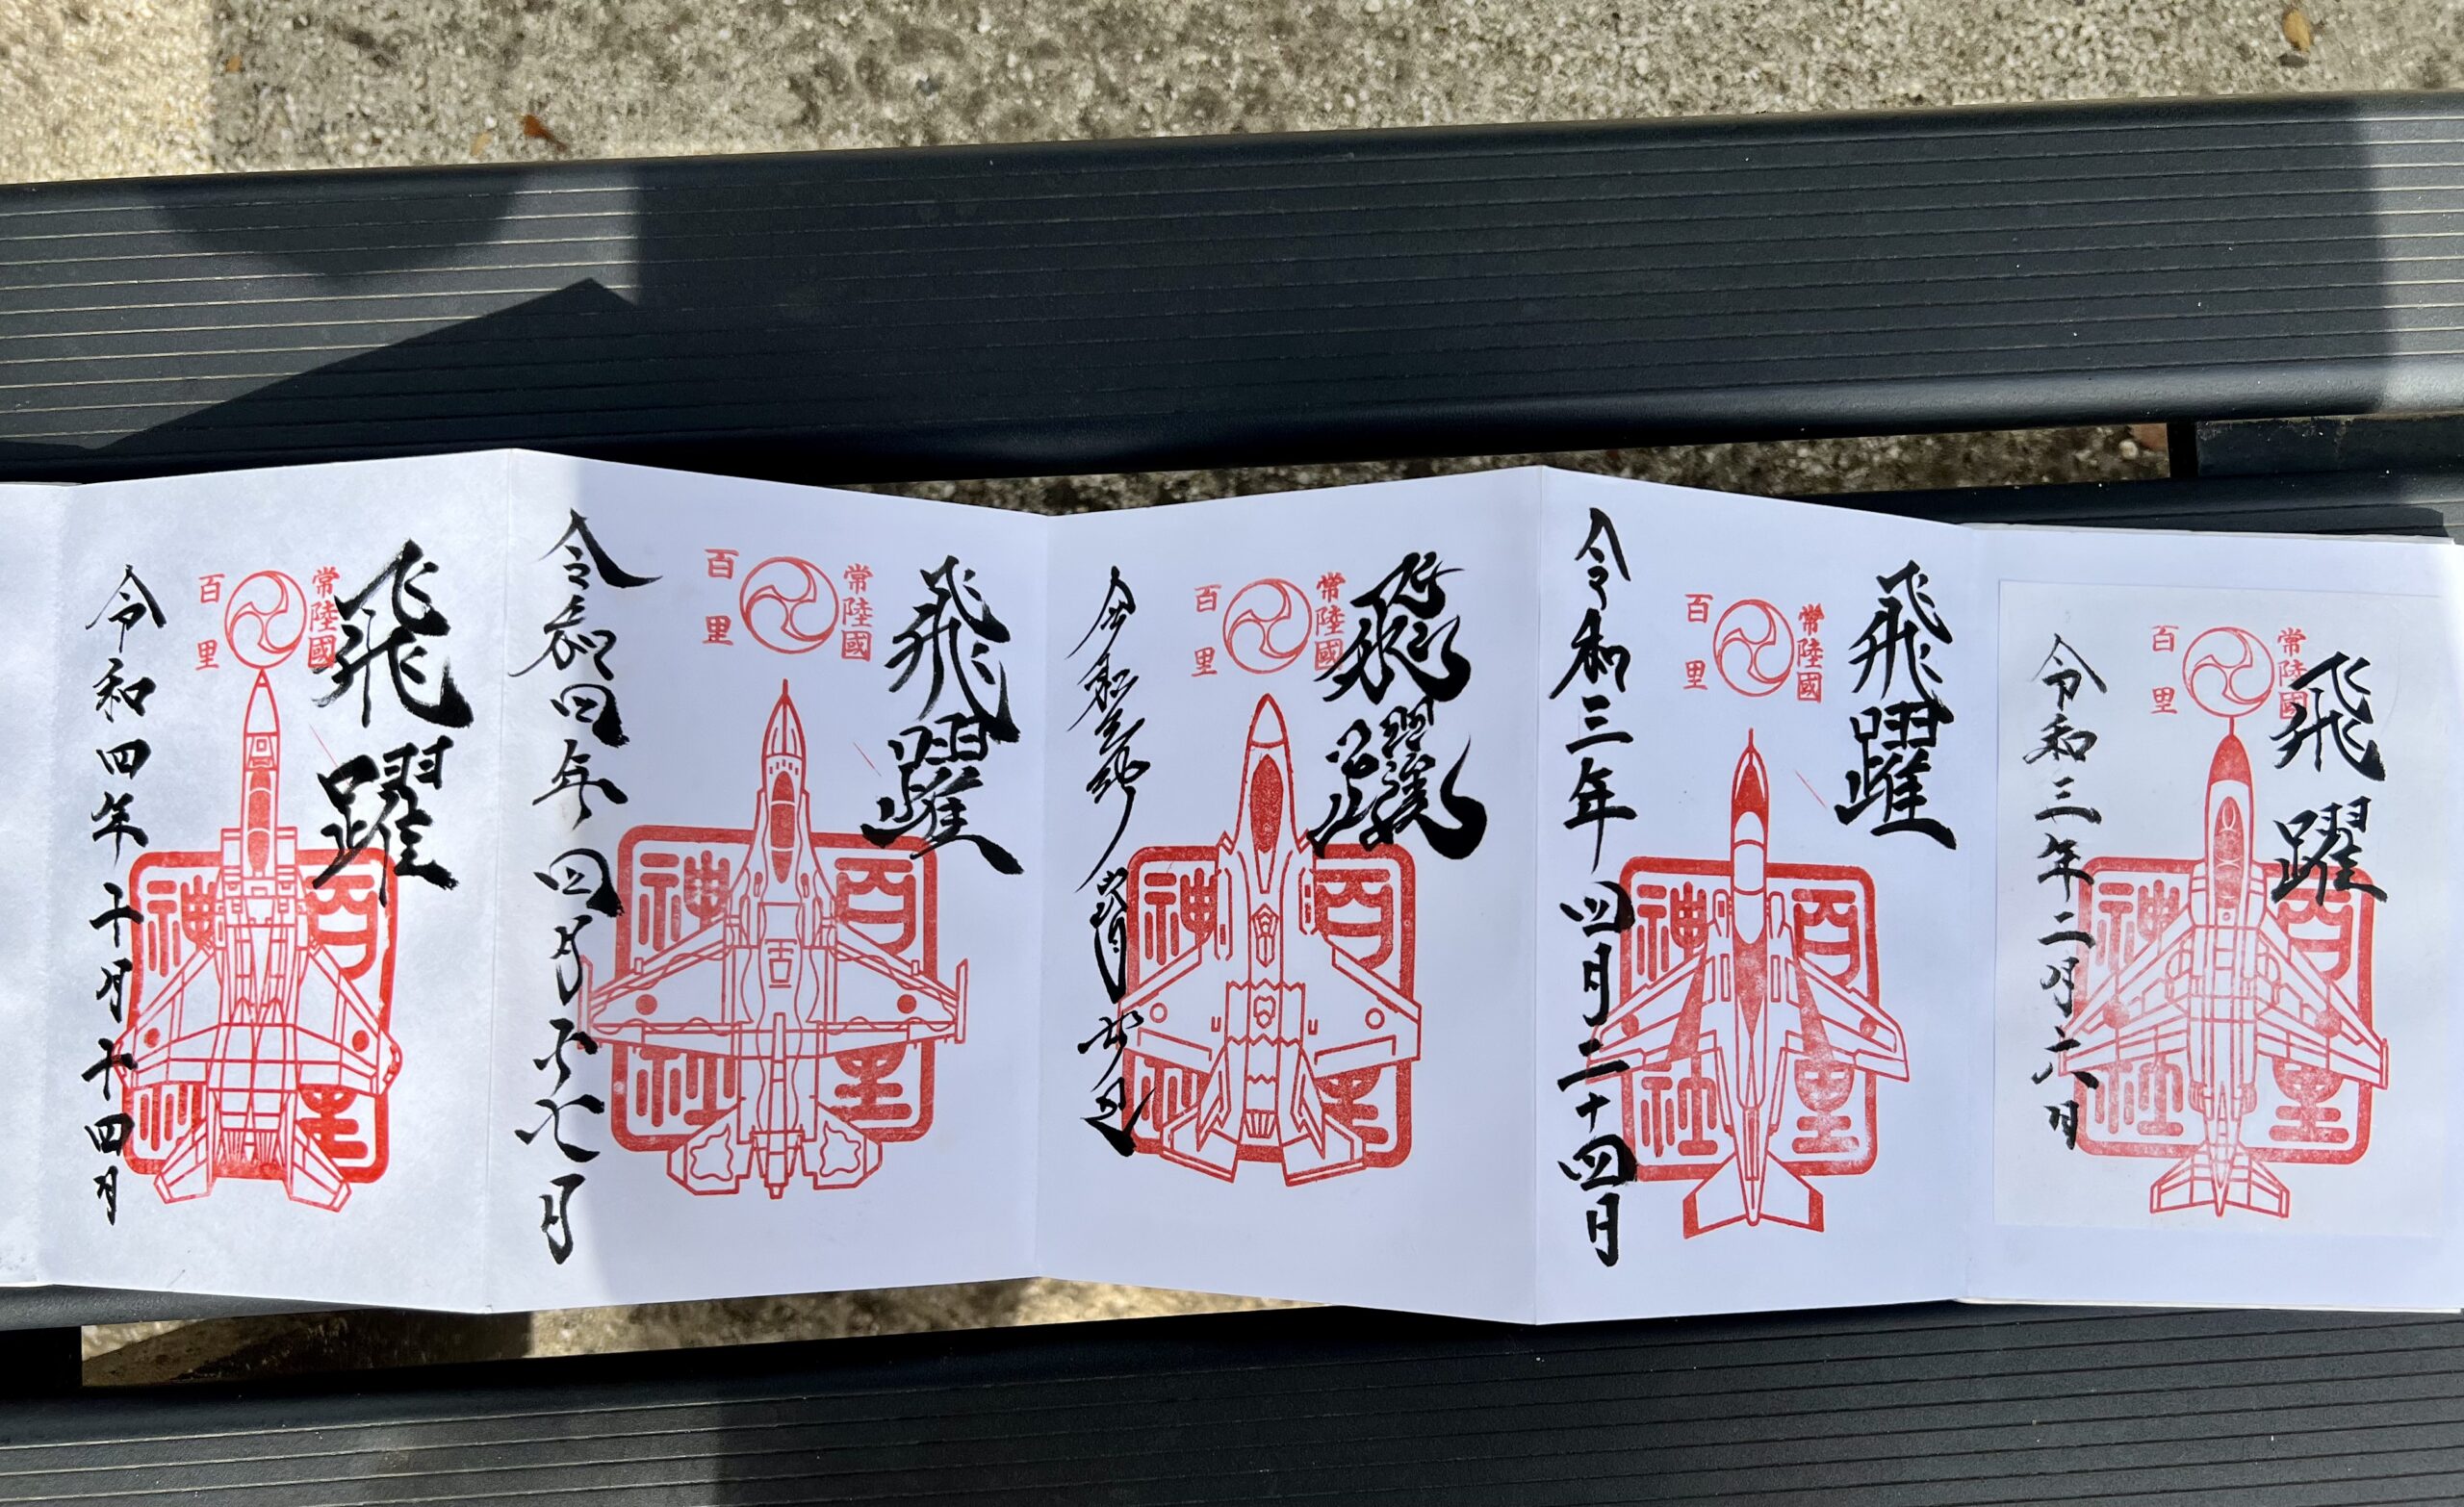 飛躍
常陸國
百里
百里
神社
令和三年二月六日
飛躍
常陸國
百里
百里
神社
令和三年四月二十四日
飛躍
常陸國
百里
百里
神社
令和三年
飛躍
常陸國
百里
百里
神社
令和四年四月七日
飛躍
常陸國
百里
百里
神社
令和四年十月十四日